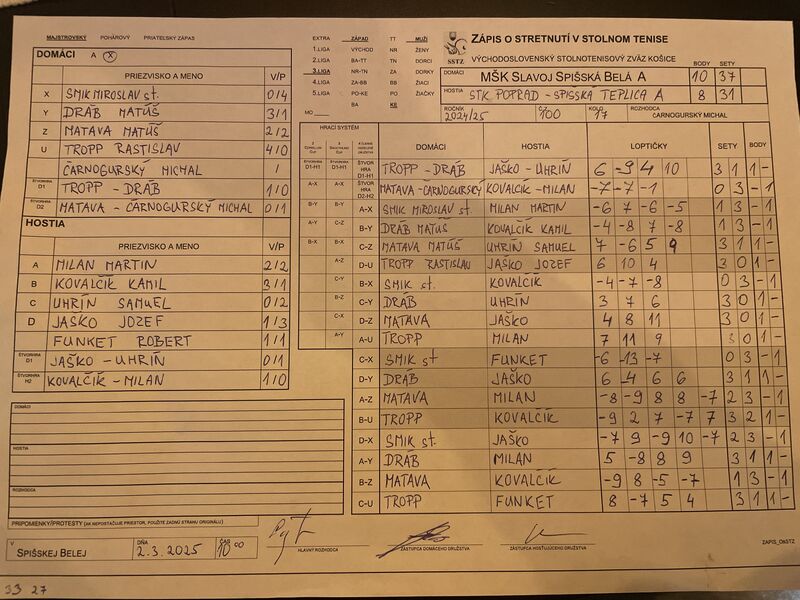 MAJSTROVSKÝ POHÁROVÝ PRIATEĽSKÝ ZÁPAS
DOMÁCI A X
PRIEZVISKO A MENO V/P
X SMIK MIROSLAV st. 0/4
Y DRÁB MATÚŠ 3/1
Z MATAVA MATÚŠ 2/2
U TROPP RASTISLAV 4/0
ČARNOGURSKÝ MICHAL /
ŠTVORHRA D1 TROPP - DRÁB 1/0
ŠTVORHRA D2 MATAVA - ČARNOGURSKÝ MICHAL 0/1
HOSTIA
PRIEZVISKO A MENO V/P
A MILAN MARTIN 2/2
B KOVALČÍK KAMIL 3/1
C UHRÍN SAMUEL 0/2
D JAŠKO JOZEF 1/3
FUNKET ROBERT 1/1
ŠTVORHRA JAŠKO - UHRÍN 0/1
ŠTVORHRA H2 KOVALČÍK - MILAN 1/0
DOMÁCI
HOSTIA
ROZHODCA
PRIPOMIENKY/PROTESTY (AK NEPOSTAČUJE PRIESTOR, POUŽITE ZADNÚ STRANU ORIGINÁLU)
V SPIŠSKEJ BELEJ DŇA 2.3.2025 ČAS 10 00
HLAVNÝ ROZHODCA ZÁSTUPCA DOMÁCEHO DRUŽSTVA ZÁSTUPCA HOSŤUJÚCEHO DRUŽSTVA
33 27
EXTRA ZÁPAD TT MUŽI
1.LIGA VÝCHOD NR ŽENY
2.LIGA BA-TT TN DORCI
3.LIGA NR-TN ZA DORKY
4.LIGA ZA-BB BB ŽIACI
5.LIGA PO-KE PO ŽIAČKY
MO BA KE
SSTZ
ZÁPIS O STRETNUTÍ V STOLNOM TENISE
VÝCHODOSLOVENSKÝ STOLNOTENISOVÝ ZVÄZ KOŠICE
BODY SETY
DOMÁCI MŠK SLAVOJ SPIŠSKÁ BELÁ A 10 37
HOSTIA STK POPRAD - SPIŠSKÁ TEPLICA A 8 31
ROČNÍK 2024/25 100 KOLO 17 ROZHODCA ČARNOGURSKÝ MICHAL
HRACÍ SYSTÉM
DOMÁCI HOSTIA LOPTIČKY SETY BODY
D1-H1 D1-H1 ŠTVORHRA D1-H1 TROPP - DRÁB JAŠKO - UHRÍN 6 -9 4 10 3 1 1 -
A-X A-X ŠTVORHRA D2-H2 MATAVA - ČARNOGURSKÝ KOVALČÍK - MILAN -7 -7 -1 0 3 - 1
B-Y B-Y A-X SMIK MIROSLAV st. MILAN MARTIN -6 7 -6 -5 1 3 - 1
A-Y C-Z B-Y DRÁB MATÚŠ KOVALČÍK KAMIL -4 -8 7 -8 1 3 - 1
B-X B-X C-Z MATAVA MATÚŠ UHRÍN SAMUEL 7 -6 5 9 3 1 1 -
A-Z D-U TROPP RASTISLAV JAŠKO JOZEF 6 10 4 3 0 1 -
C-Y B-X SMIK st. KOVALČÍK -4 -7 -8 0 3 - 1
B-Z C-Y DRÁB UHRÍN 3 7 6 3 0 1 -
C-X D-Z MATAVA JAŠKO 4 8 11 3 0 1 -
A-Y A-U TROPP MILAN 7 11 9 3 0 1 -
C-X SMIK st FUNKET -6 -13 -7 0 3 - 1
D-Y DRÁB JAŠKO 6 -4 6 6 3 1 1 -
A-Z MATAVA MILAN -8 -9 8 8 -7 2 3 - 1
B-U TROPP KOVALČÍK -9 2 7 -7 7 3 2 1 -
D-X SMIK st. JAŠKO -7 9 -9 10 -7 2 3 - 1
A-Y DRÁB MILAN 5 -8 8 9 3 1 1 -
B-Z MATAVA KOVALČÍK -9 8 -5 -7 1 3 - 1
C-U TROPP FUNKET 8 -7 5 4 3 1 1 -
ZAPIS_OkSTZ